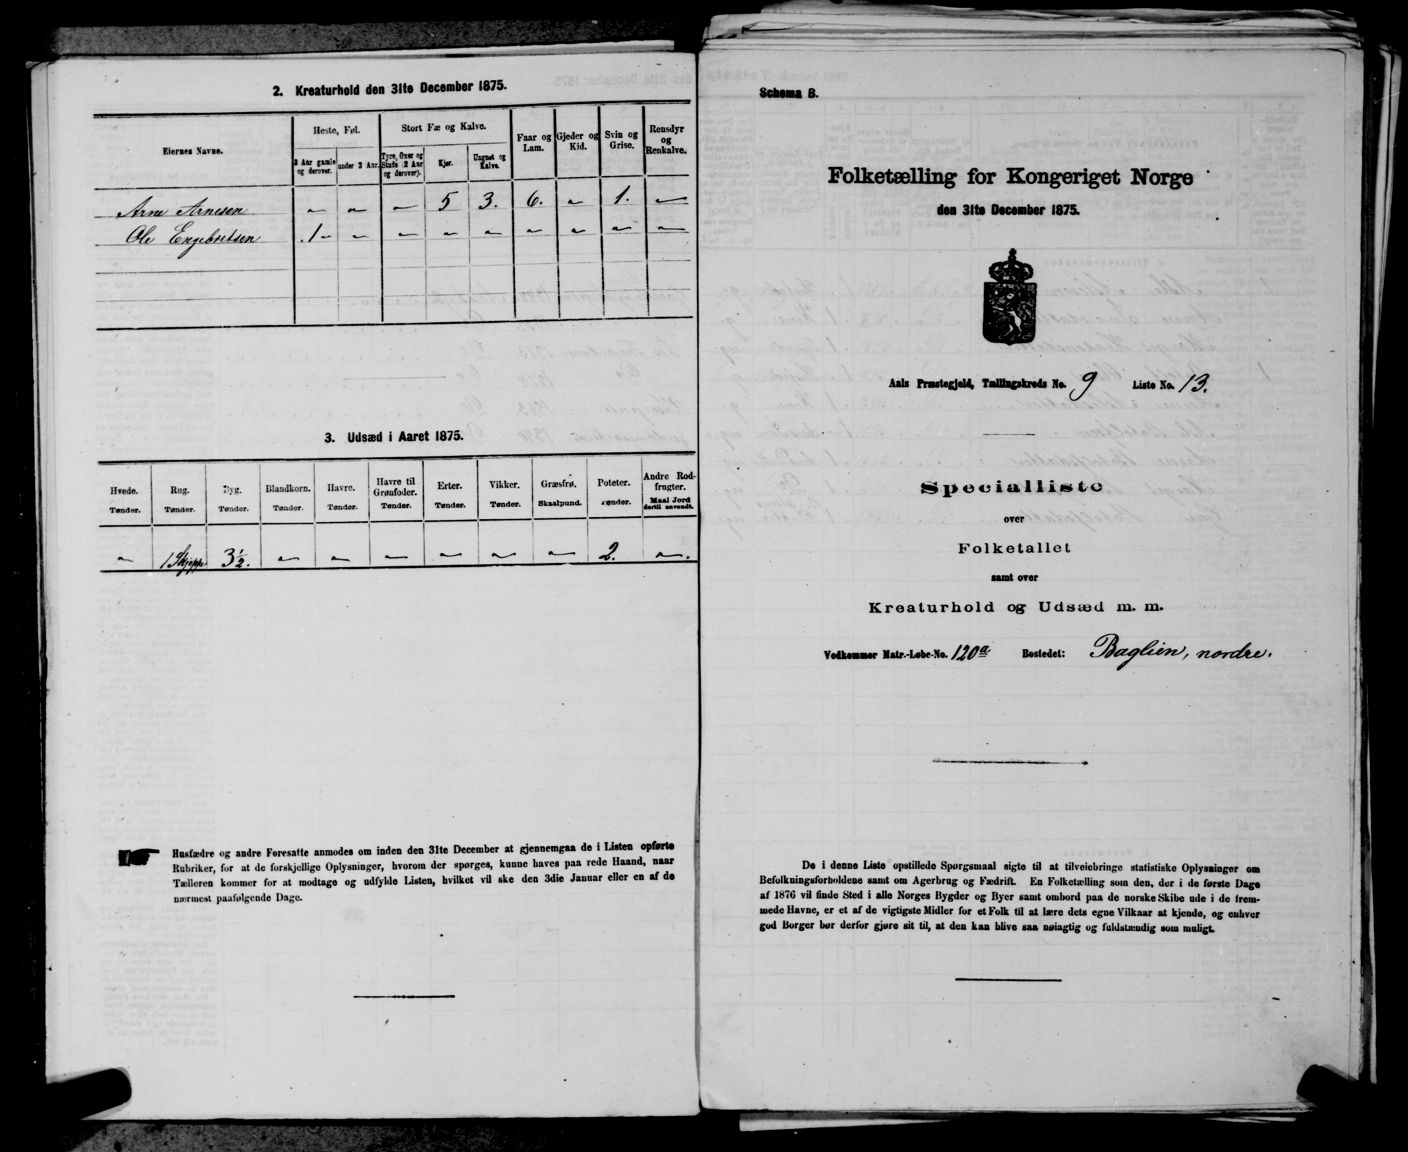 2. Kreaturhold den 31te December 1875.
Eiernes Navne.
Heste, Føl.
Stort Fæ og Kalve.
Faar og Lam.
Gjeder og Kid.
Svin og Grise.
Rensdyr og Renkalve.
3 Aar gamle og derover.
under 3 Aar.
Tyre, Oxer og Stude (2 Aar og derover).
Kjør.
Ungnøt og Kalve.
Arne Arnesen " " " 5 3. 6. " 1. "
Ole Engebretsen 1 " " " " " " " "
3. Udsæd i Aaret 1875.
Hvede. Rug. Byg. Blandkorn. Havre. Havre til Grønfoder. Erter. Vikker. Græsfrø. Poteter. Andre Rodfrugter.
Tønder. Tønder. Tønder. Tønder. Tønder. Tønder. Tønder. Tønder. Skaalpund. Tønder. Maal Jord dertil anvendt.
" 1 Skjeppe 3½. " " " " " " 2. "
Husfædre og andre Foresatte anmodes om inden den 31te December at gjennemgaa de i Listen opførte
Rubriker, for at de forskjellige Oplysninger, hvorom der spørges, kunne haves paa rede Haand, naar
Tælleren kommer for at modtage og udfylde Listen, hvilket vil ske den 3die Januar eller en af de
nærmest paafølgende Dage.
Schema B.
Folketælling for Kongeriget Norge
den 31te December 1875.
Aals Præstegjeld, Tællingskreds No. 9 Liste No. 13.
Specialliste
over
Folketallet
samt over
Kreaturhold og Udsæd m. m.
Vedkommer Matr.-Løbe-No. 120a Bostedet: Baglien, nordre.
De i denne Liste opstillede Spørgsmaal sigte til at tilveiebringe statistiske Oplysninger om
Befolkningsforholdene samt om Agerbrug og Fædrift. En Folketælling som den, der i de første Dage
af 1876 vil finde Sted i alle Norges Bygder og Byer samt ombord paa de norske Skibe ude i de frem-
mede Havne, er et af de vigtigste Midler for et Folk til at lære dets egne Vilkaar at kjende, og enhver
god Borger bør derfor gjøre sit til, at den kan blive saa nøiagtig og fuldstændig som muligt.